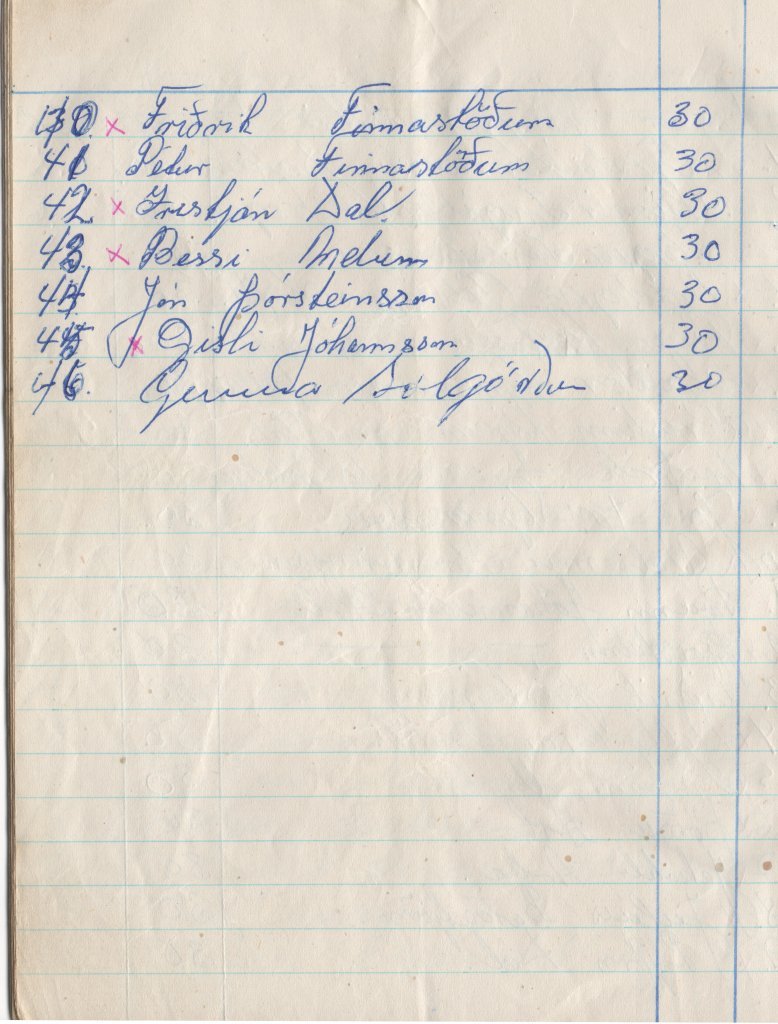 40 x Friðrik Finnastöðum 30
41 Pétur Finnastöðum 30
42. x Kristján Dal. 30
43. x Bessi Melum 30
44 Jón Þórsteinsson 30
45 x Gísli Jóhannsson 30
46. Gunnar 30